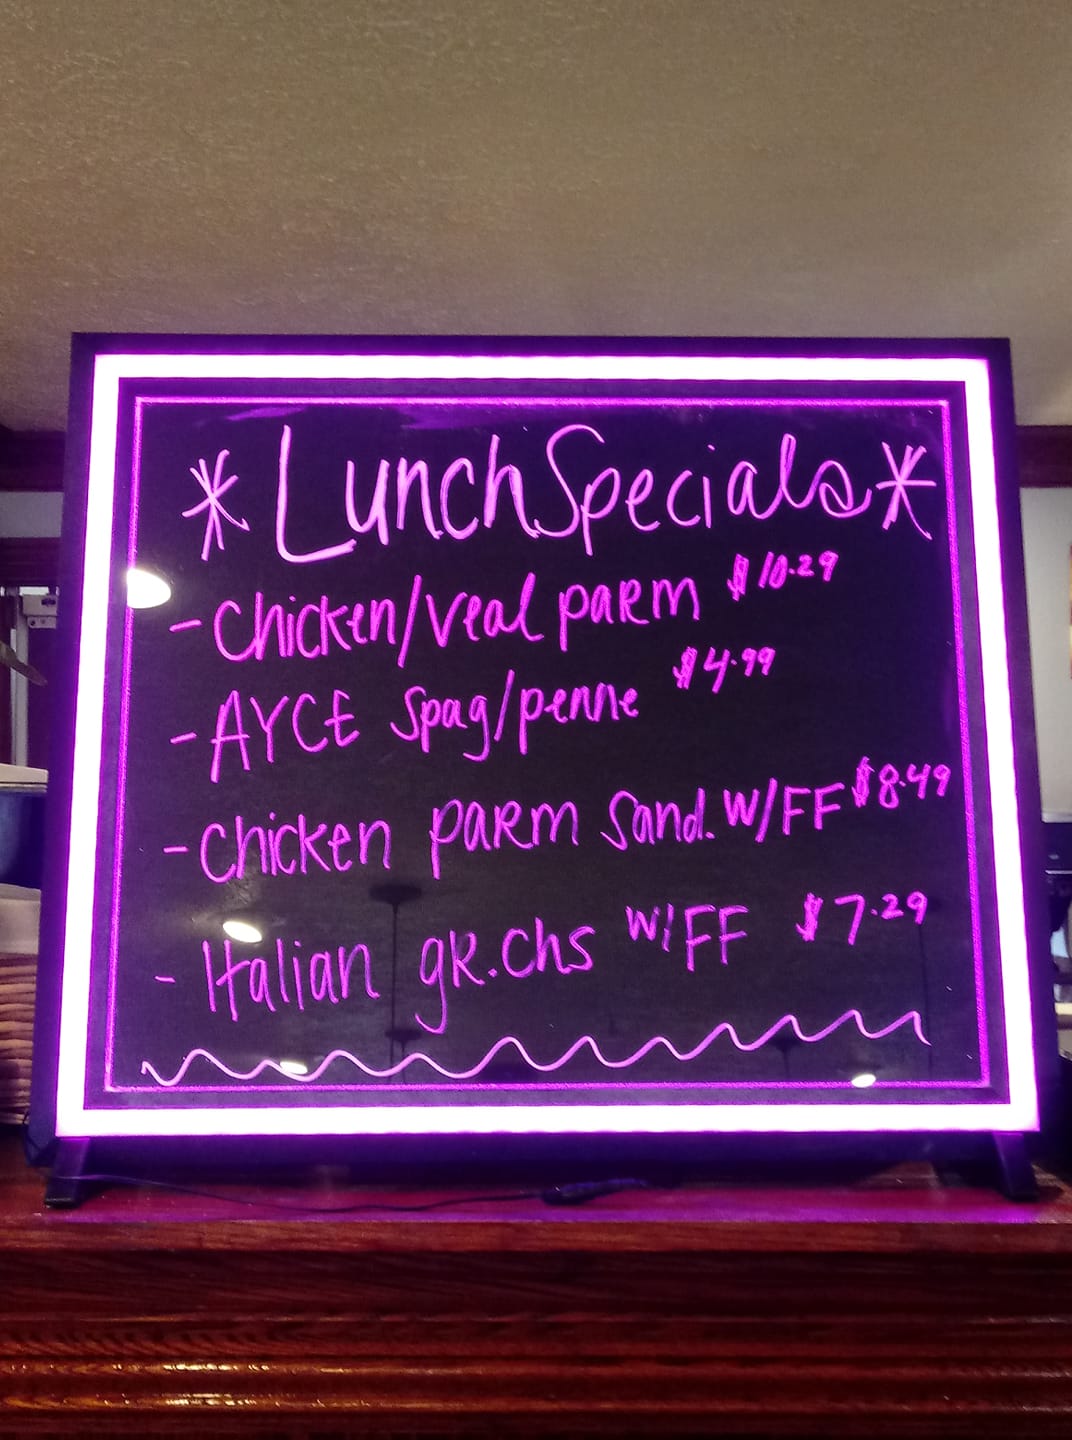 *LunchSpecials*
- Chicken/veal parm $10.29
- AYCE Spag/penne $4.99
- Chicken parm Sand. W/FF $8.49
- Italian gr.chs W/FF $7.29